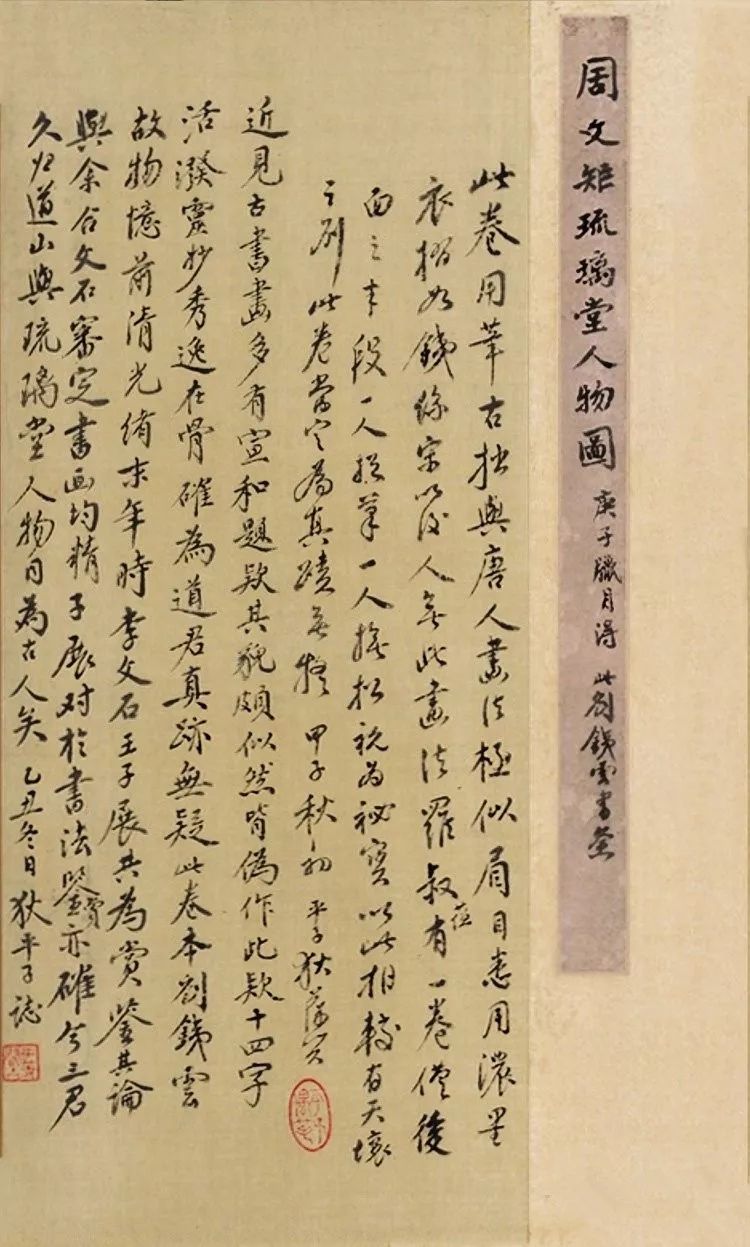 周文矩琉璃堂人物圖 庚子臘月得 此劉鐵雲書簽
此卷用筆古拙與唐人畫法極似眉目悉用濃墨
衣摺如鐵線宋以後人無此畫法羅叔言有一卷僅後
面之半段一人撚筆一人撫松視為祕寶以此相較有天壤
之別此卷當定為真蹟無疑 甲子秋初 平子狄葆賢
近見古書畫多有宣和題款其貌頗似然皆偽作此款十四字
活潑靈妙秀逸在骨確為道君真跡無疑此卷本劉鐵雲
故物憶前清光緒末年時李文石王子展共為賞鑒其論
與余合文石審定書畫均精子展对於書法鑒賞亦確今三君
久归道山與琉璃堂人物同為古人矣 乙丑冬日 狄平子誌